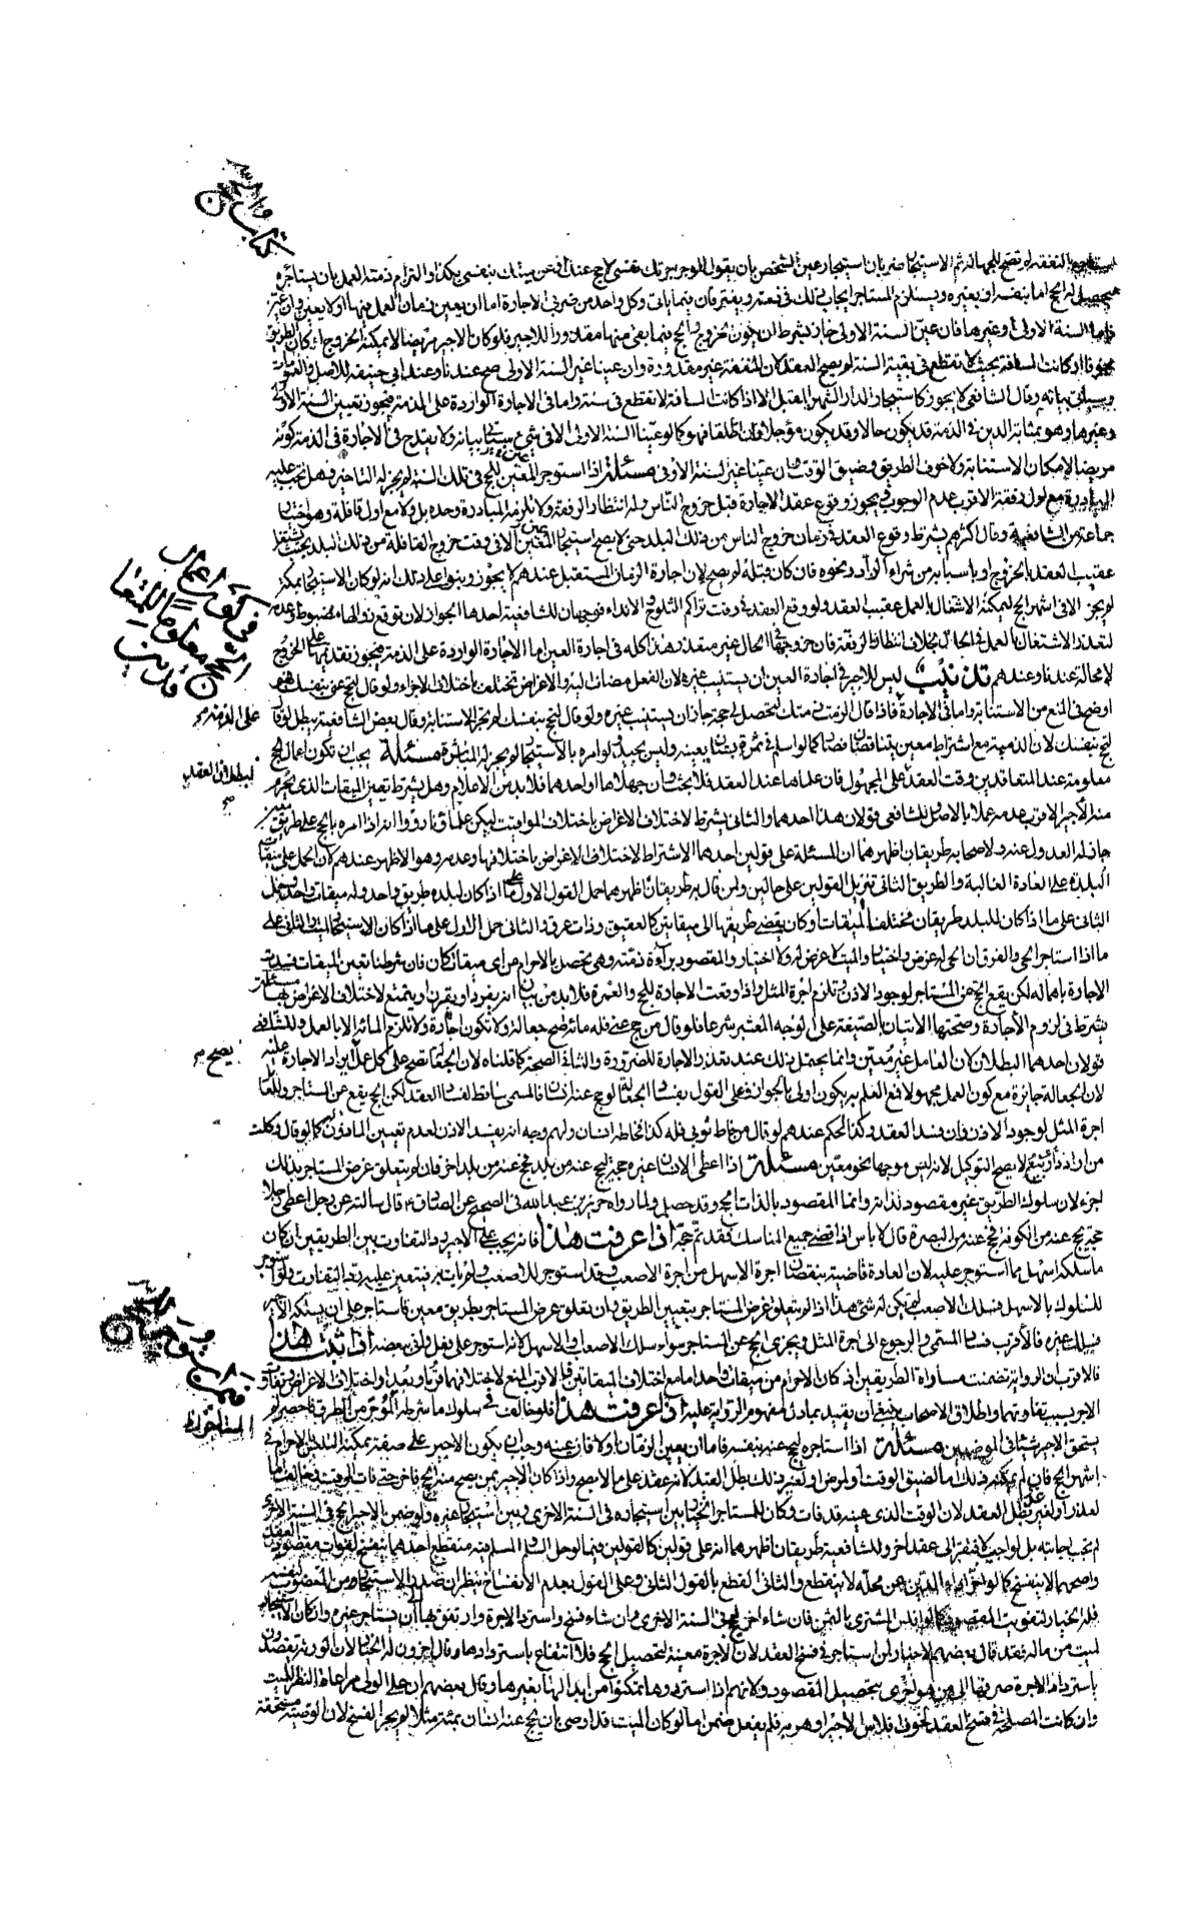 بالنفقة لم تصح الجهالة ثم الاستيجار ضربان استيجار عين الشخص بان يقول الموجر اجرتك نفسي لاحج عنك او عن ميتك بنفسي بكذا والزام ذمته العمل بان يستاجره
ليحصل له الحج اما بنفسه او بغيره
السنة الاولى او غيرها فان عين السنة الاولى جاز بشرط ان يكون الخروج والحج فيما بقي منها مقدورا للاجير فلو كان الاجير مريضا لا يمكنه الخروج او كان الطريق
مخوفا او كانت المسافة بحيث لا تنقطع في بقية السنة لم يصح العقد لان المنفعة غير مقدورة وان عينا غير السنة الاولى صح عندنا وعند ابي حنيفة للاصل
وسياتي بيانه وقال الشافعي لا يجوز كاستيجار الدار الشهر المقبل الا اذا كانت المسافة لا تنقطع في سنة واما في الاجارة الواردة على الذمة فيجوز تعيين السنة الاولى
وغيرها وهو بمثابة الدين في الذمة قد يكون حالا وقد يكون مؤجلا وان اطلقا فهو كما لو عينا السنة الاولى الا في شيء سياتي بيانه ولا يقدح في الاجارة في الذمة كونه
مريضا لامكان الاستنابة ولا خوف الطريق وضيق الوقت ان عينا غير السنة الاولى مسئلة اذا استوجر المعين للحج في تلك السنة لم يجز له التاخير وهل تجب عليه
المبادرة مع اول رفقة الاقرب عدم الوجوب فيجوز وقوع عقد الاجارة قبل خروج الناس وله انتظار الرفقة ولا تلزمه المبادرة وحده بل ولا مع اول قافلة وهو اختيار
جماعة من الشافعية وقال اكثرهم يشترط وقوع العقد في زمان خروج الناس من ذلك البلد حتى لا يصح استيجار المعين الا في وقت خروج القافلة من ذلك البلد بحيث يشتغل
عقيب العقد بالخروج او باسبابه من شراء الزاد ونحوه فان كان قبله لم يصح لان اجارة الزمان المستقبل عندهم لا يجوز وبنوا على ذلك انه لو كان الاستيجار بمكة
لم يجز الا في اشهر الحج ليمكنه الاشتغال بالعمل عقيب العقد ولو وقع العقد في وقت تراكم الثلوج والانداء فوجهان للشافعية احدهما الجواز لان توقع زوالها مضبوط وعدمه
لتعذر الاشتغال بالعمل في الحال بخلاف انتظار الرفقة فان خروجها في الحال غير متعذر وهذا كله في اجارة العين اما الاجارة الواردة على الذمة فيجوز تقديمها على الخروج
لا محالة عندنا وعندهم تذنيب ليس للاجير في اجارة العين ان يستنيب غيره لان الفعل مضاف اليه والاغراض تختلف باختلاف الاجراء ولو قال لتحج عني بنفسك فهو
اوضح في المنع من الاستنابة واما في الاجارة على الذمة فاذا قال الزمت ذمتك لتحصل لي حجة جاز ان يستنيب غيره ولو قال لتحج بنفسك لم تجز الاستنابة وقال بعض الشافعية يبطل لو قال
لتحج بنفسك لان الذمية مع اشتراط معين يتناقضان فصار كما لو اسلم في ثمرة بستان بعينه وليس بجيد مسئلة يجب ان تكون اعمال الحج
معلومة عند المتعاقدين وقت العقد لبطلان العقد على المجهول فان علماها عند العقد فلا بحث وان جهلاها او احدهما فلا بد من الاعلام وهل يشترط تعيين الميقات الذي يحرم
منه الاجير الاقرب عدمه عملا بالاصل للشافعي قولان هذا احدهما والثاني يشترط لاختلاف الاغراض باختلاف المواقيت
جاز له العدول عنه ولاصحابه طريقان اظهرهما ان المسئلة على قولين احدهما الاشتراط لاختلاف الاغراض باختلافها وعدمه وهو الاظهر عندهم لان الحمل على ميقات
البلدة على العادة الغالبة والطريق الثاني تنزيل القولين على حالين ولمن قال به طريقان اظهرهما حمل القول الاول على ما اذا كان لبلده طريق واحد وله ميقات واحد وحمل
الثاني على ما اذا كان للبلد طريقان مختلفا الميقات او كان يفضي طريقها الى ميقاتين كالعقيق وذات عرق والثاني حمل الاول على ما اذا كان الاستيجار لميت والثاني على
ما اذا استاجر الحي والفرق ان الحي له غرض واختيار والميت لا غرض له ولا اختيار والمقصود براءة ذمته وهي تحصل بالاحرام من اي ميقات كان فان شرطنا تعيين الميقات فسدت
الاجارة باهماله لكن يقع الحج عن المستاجر لوجود الاذن وتلزم اجرة المثل واذا وقعت الاجارة للحج والعمرة فلا بد من بيان انه يفرد او يقرن او يتمتع لاختلاف الاغراض بها مسئلة
يشترط في لزوم الاجارة وصحتها الاتيان بالصيغة على الوجه المعتبر شرعا فلو قال من حج عني فله مائة صح جعالة ولا تكون اجارة ولا تلزم المائة الا بالعمل وللشافعي
قولان احدهما البطلان لان العامل غير معين وانما يحتمل ذلك عند تعذر الاجارة للضرورة والثاني يصح الصحة كما قلناه لان الجعالة تصح على كل عمل يراد الاجارة عليه
لان الجعالة جائزة مع كون العمل مجهولا فمع العلم به يكون اولى بالجواز وعلى القول بفساد الجعالة لو حج عنه انسان فالمسمى ساقط لفساد العقد لكن الحج يقع عن المستاجر وللعامل
اجرة المثل لوجود الاذن وان فسد العقد وكذا الحكم عندهم لو قال من خاط ثوبي فله كذا فخاطه انسان ولهم وجه انه يفسد الاذن لعدم تعيين الماذون له كما لو قال وكلت
من اراد بيع داري لا يصح التوكيل لانه ليس موجها نحو معين مسئلة اذا اعطى الانسان غيره حجة ليحج عنه من بلد فحج عنه من بلد اخر فان لم يتعلق غرض المستاجر بذلك
اجزء لان سلوك الطريق غير مقصود لذاته وانما المقصود بالذات الحج وقد حصل ولما رواه حريز بن عبد الله في الصحيح عن الصادق ع قال سالته عن رجل اعطى رجلا
حجة يحج عنه من الكوفة فحج عنه من البصرة قال لا باس اذا قضى جميع المناسك فقد تم حجه اذا عرفت هذا فانه يجب على الاجير رد التفاوت بين الطريقين ان كان
ما سلكه اسهل مما استوجر عليه لان العادة قاضية بنقصان اجرة الاسهل من اجرة الاصعب وقد استوجر للاصعب ولم يات به فيتعين عليه رد التفاوت ولو استوجر
للسلوك بالاسهل فسلك الاصعب لم يكن له شئ هذا اذا لم يتعلق غرض المستاجر بتعيين الطريق وان تعلق غرض المستاجر بطريق معين فاستاجره على ان يسلكه الاجير
فسلك غيره فالاقرب فساد المسمى والرجوع الى اجرة المثل ويجزي الحج عن المستاجر سواء سلك الاصعب او الاسهل لانه استوجر على فعل واتى ببعضه اذا ثبت هذا
فالاقرب ان الرواية تضمنت مساواة الطريقين اذ كان الاحرام من ميقات واحد اما مع اختلاف الميقاتين فالاقرب المنع لاختلافهما قربا وبعدا واختلاف الاغراض وتفاوت
الاجر بسبب تفاوتهما واطلاق الاصحاب ينبغي ان يقيد بما دل مفهوم الرواية عليه اذا عرفت هذا فلو خالف في سلوك ما شرطه المؤجر من الطرق فاحصر لم
يستحق الاجير شيئا في الموضعين مسئلة اذا استاجره ليحج عنه بنفسه فاما ان يعين الزمان او لا فان عينه وجب ان يكون الاجير على صفة يمكنه التلبس بالاحرام في
اشهر الحج فان لم يمكنه ذلك اما لضيق الوقت او لمرض او لغير ذلك بطل العقد لانه عقد على ما لا يصح واذا كان الاجير ممن يصح منه الحج فاخر حتى فات الوقت وخالف اما
لعذر او لغير عذر بطل العقد لان الوقت الذي عينه قد فات وكان للمستاجر الخيار بين استيجاره في السنة الاخرى وبين استيجار غيره ولو ضمن الاجير الحج في السنة الاخرى
لم تجب اجابته بل لو اجيب لافتقر الى عقد اخر وللشافعية طريقان اظهرهما انه على قولين كالقولين فيما لو حل السلم والمسلم فيه منقطع احدهما ينفسخ لفوات مقصود العقد
واصحهما لا ينفسخ كما لو اخر اداء الدين عن محله لا ينقطع والثاني القطع بالقول الثاني وعلى القول بعدم الانفساخ ينظر ان صدر الاستيجار من المعضوب لنفسه
فله الخيار لتفويت المقصود كما لو افلس المشتري بالثمن فان شاء اخر ليحج في السنة الاخرى وان شاء فسخ واسترد الاجرة وارتفق بها الى ان يستاجر غيره وان كان الاستيجار
لميت من ماله فقد قال بعضهم لا خيار لمن استاجر في فسخ العقد لان الاجرة معينة لتحصيل الحج فلا انتفاع باستردادها وقال اخرون له الخيار لان الورثة يقصدون
باسترداد الاجرة صرفها الى من هو احرى بتحصيل المقصود ولانهم اذا استردوها تمكنوا من ابدالها بغيرها وقال بعضهم ان على الولي مراعاة النظر للميت
وان كانت المصلحة في فسخ العقد لخوف افلاس الاجير او هربه فلم يفعل ضمن اما لو كان الميت قد اوصى بان يحج عنه انسان بمئة مثلا لم يجز الفسخ لان الوصية مستحقة